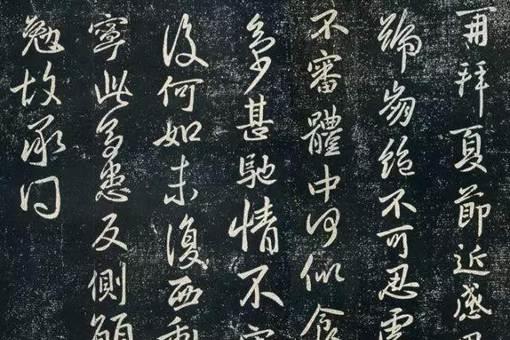 再拜夏節近感
號崩絕不可忍
不審體中何似食
甚馳情不
何如未復西
寧此多患反側願
勉故承問